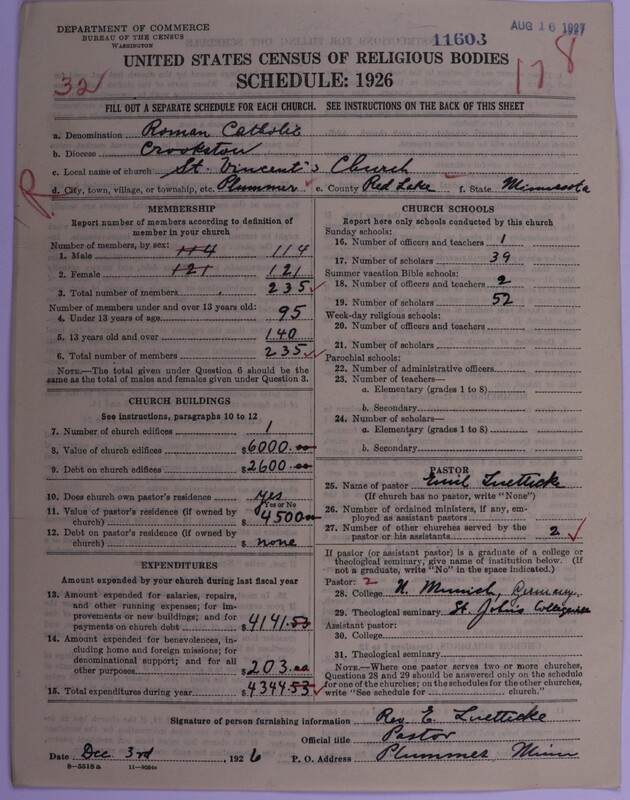 DEPARTMENT OF COMMERCE
BUREAU OF THE CENSUS
WASHINGTON
11603
AUG 16 1927
32
178
UNITED STATES CENSUS OF RELIGIOUS BODIES
SCHEDULE: 1926
FILL OUT A SEPARATE SCHEDULE FOR EACH CHURCH. SEE INSTRUCTIONS ON THE BACK OF THIS SHEET
a. Denomination Roman Catholic
b. Diocese Crookston
c. Local name of church St. Vincent's Church
R
d. City, town, village, or township, etc. Plummer e. County Red Lake f. State Minnesota
MEMBERSHIP
Report number of members according to definition of
member in your church
Number of members, by sex:
1. Male 114 114
2. Female 121 121
3. Total number of members 235
Number of members under and over 13 years old:
4. Under 13 years of age 95
5. 13 years old and over 140
6. Total number of members 235
NOTE.—The total given under Question 6 should be
same as the total of males and females given under Question 3.
CHURCH BUILDINGS
See instructions, paragraphs 10 to 12
7. Number of church edifices 1
8. Value of church edifices $6000.00
9. Debt on church edifices $2600.00
10. Does church own pastor's residence yes
Yes or No
11. Value of pastor's residence (if owned by
church) $4500.00
12. Debt on pastor's residence (if owned by
church) $ none
EXPENDITURES
Amount expended by your church during last fiscal year
13. Amount expended for salaries, repairs,
and other running expenses; for im-
provements or new buildings; and for
payments on church debt $4141.53
14. Amount expended for benevolences, in-
cluding home and foreign missions; for
denominational support; and for all
other purposes $203.00
15. Total expenditures during year $4344.53
CHURCH SCHOOLS
Report here only schools conducted by this church
Sunday schools:
16. Number of officers and teachers 1
17. Number of scholars 39
Summer vacation Bible schools:
18. Number of officers and teachers 2
19. Number of scholars 52
Week-day religious schools:
20. Number of officers and teachers
21. Number of scholars
Parochial schools:
22. Number of administrative officers
23. Number of teachers—
a. Elementary (grades 1 to 8)
b. Secondary
24. Number of scholars—
a. Elementary (grades 1 to 8)
b. Secondary
PASTOR
25. Name of pastor Emil Luetticke
(If church has no pastor, write "None")
26. Number of ordained ministers, if any, em-
ployed as assistant pastors
27. Number of other churches served by the
pastor or his assistants 2
If pastor (or assistant pastor) is a graduate of a college or
theological seminary, give name of institution below. (If
not a graduate, write "No" in the space indicated.)
Pastor: 2
28. College U. Munich, Germany.
29. Theological seminary St. Johns Collegeville
Assistant pastor:
30. College
31. Theological seminary
NOTE.—Where one pastor serves two or more churches,
Questions 28 and 29 should be answered only on the schedule
for one of the churches; on the schedules for the other churches,
write "See schedule for church."
Signature of person furnishing information Rev. E. Luetticke
Official title Pastor
Date Dec 3rd, 1926 P. O. Address Plummer Minn
8—5518 a 11—9084a